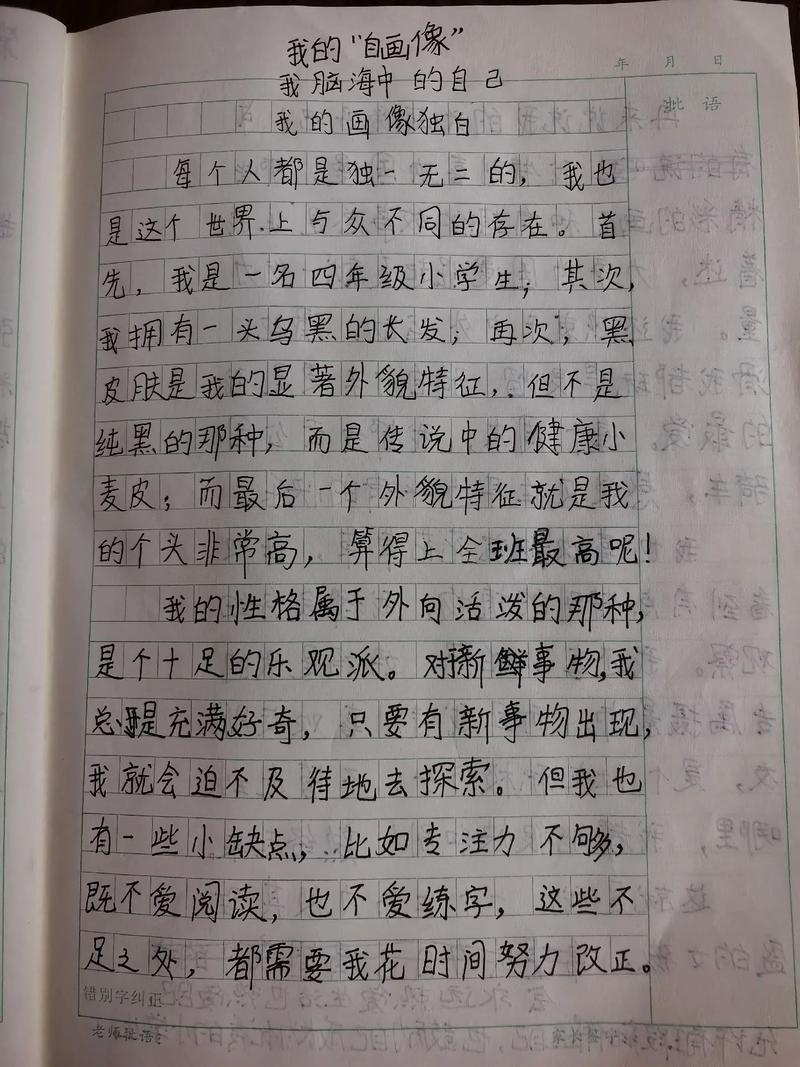 我的“自画像”
我脑海中的自己
年 月 日
批语
我的画像独白
每个人都是独一无二的，我也
是这个世界上与众不同的存在。首
先，我是一名四年级小学生；其次，
我拥有一头乌黑的长发；再次，黑
皮肤是我的显著外貌特征，但不是
纯黑的那种，而是传说中的健康小
麦皮；而最后一个外貌特征就是我
的个头非常高，算得上全班最高呢！
我的性格属于外向活泼的那种，
是个十足的乐观派。对新鲜事物，我
总是充满好奇，只要有新事物出现，
我就会迫不及待地去探索。但我也
有一些小缺点，比如专注力不够，
既不爱阅读，也不爱练字，这些不
足之处，都需要我花时间努力改正。
错别字纠正
老师批语：